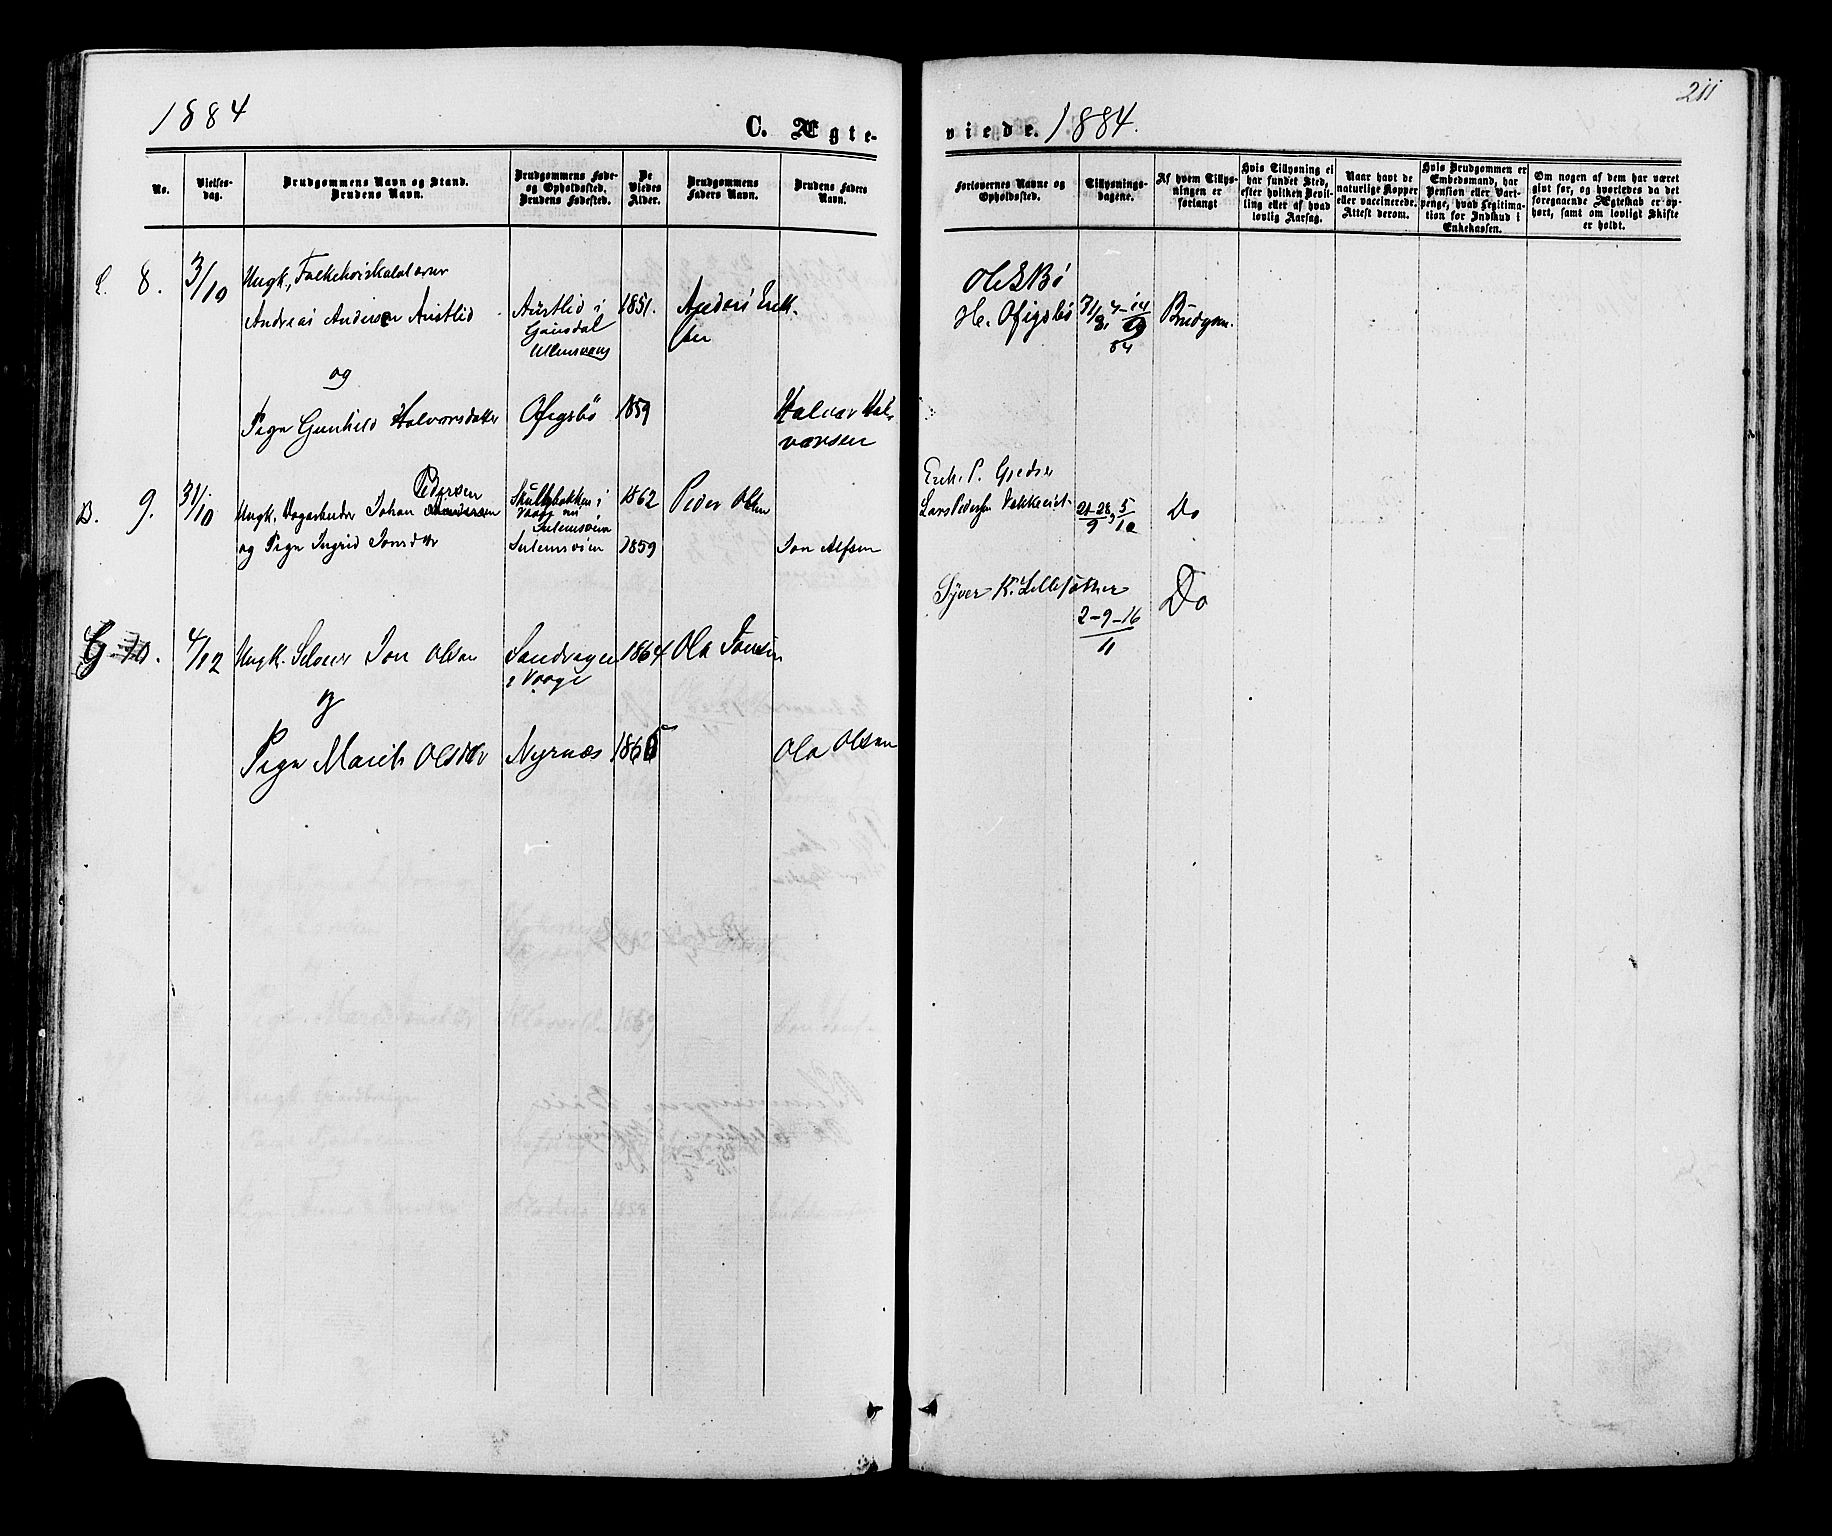 1884
C. Ægte-
No.
Vielses-
dag.
Brudgommens Navn og Stand.
Brudens Navn.
Brudgommens Føde-
og Opholdssted.
Brudens Fødested.
De
Viedes
Alder.
Brudgommens
Faders Navn.
Brudens Faders
Navn.
8.
3/10
Ungk.
Andreas Andersen Austlid
Austlid i
Gausdal
1851.
Anders Erik-
sen
og
Pige Gunhild Halvorsdatter
Øfigsbö
1859
Halvor Hal-
vorsen
B. 9.
31/10
Pedersen
Ungk. Johan
i
1862
Peder Olsen
og Pige Ingrid Jonsdtr
1859
Jon
G. 10.
4/12
Ungk. Jon Olsen
i Vaage
1864
Ola Jonsen
og
Pige Marit Olsdtr
Nyrnæs
Ola Olsen
211
viede. 1884.
Forlovernes Navne og
Opholdssted.
Tillysnings-
dagene.
Af hvem Tillys-
ningen er
forlangt
Hvis Tillysning ei
har fundet Sted,
efter hvilken Bevil-
ling eller af hvad
lovlig Aarsag.
Naar havt de
naturlige Kopper
eller vaccinerede.
Attest derom.
Hvis Brudgommen er
Embedsmand, har
Pension eller Vart-
penge, hvad Legitima-
tion for Indskud i
Enkekassen.
Om nogen af dem har været
gift før, og hvorledes da det
foregaaende Ægteskab er op-
hørt, samt om lovligt Skifte
er holdt.
Ole Bö
H. Øfigsbö
Brudgom.
Erik P.
Lars Pedersen
21-28/9, 5/10
Do
Syver K.
2-9-16
11
Do